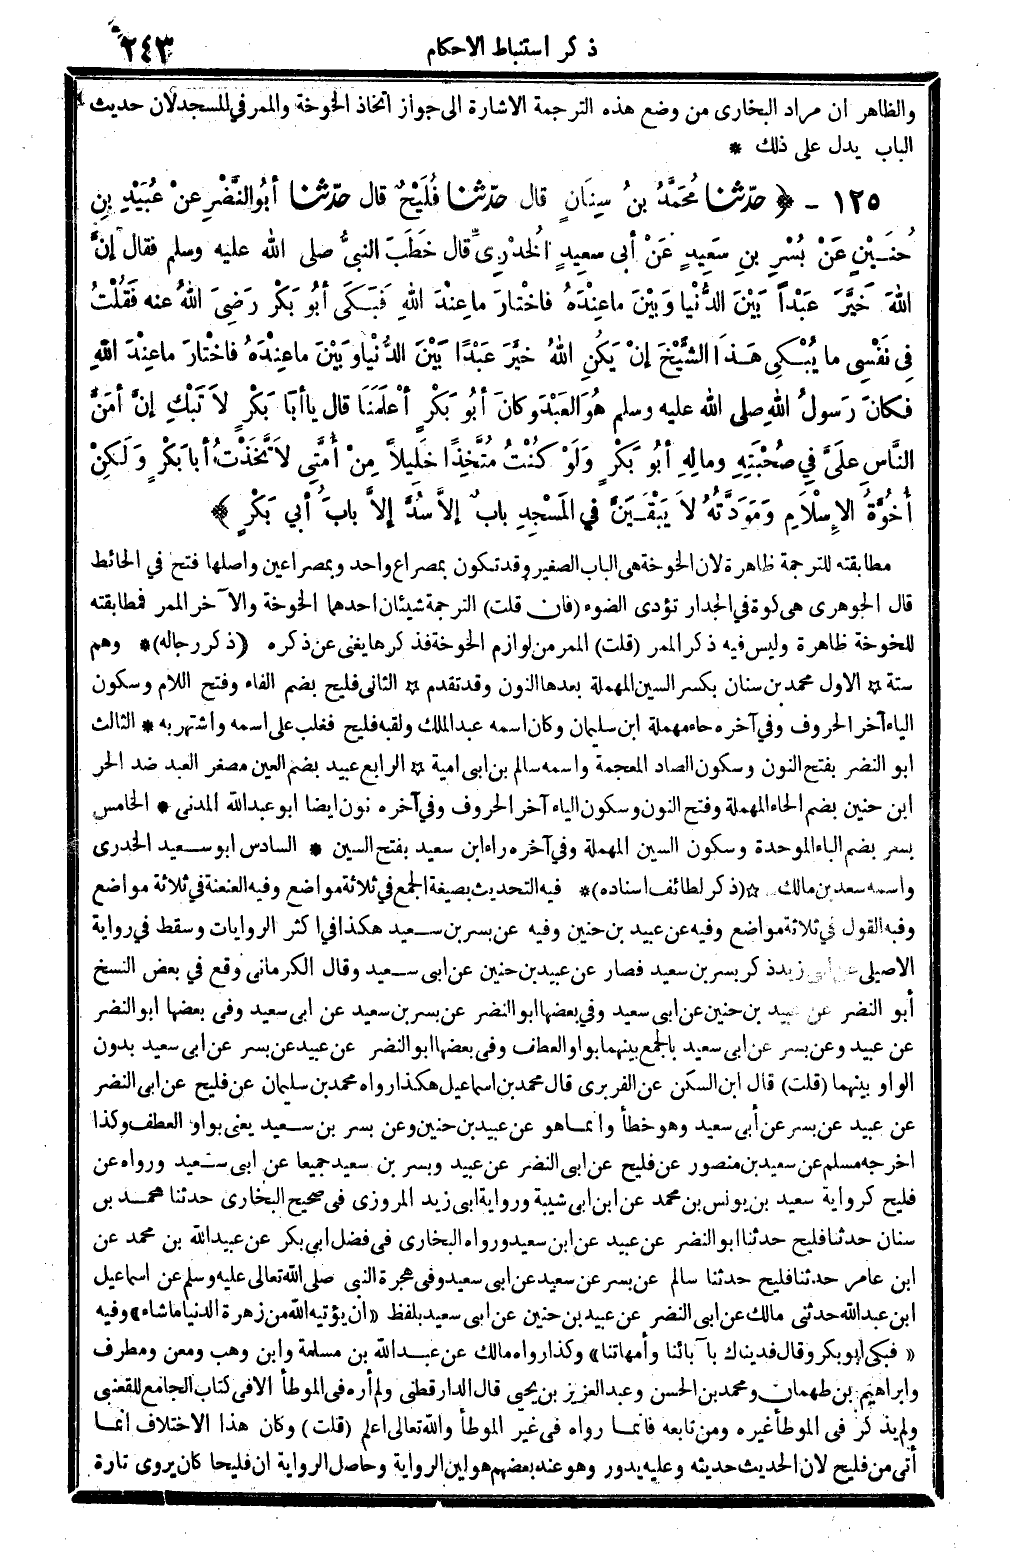 ذكر استنباط الاحكام
٢٤٣
والظاهر ان مراد البخارى من وضع هذه الترجمة الاشارة الى جواز اتخاذ الخوخة والممر في المسجد لان حديث
الباب يدل على ذلك *
١٢٥ - ﴿ حدّثنا مُحَمَّدُ بنُ سِنَانٍ قال حدّثنا فُلَيْحٌ قال حدّثنا أبُو النَّضْرِ عنْ عُبَيْدِ بنِ
حُنَيْنٍ عَنْ بُسْرِ بنِ سَعِيدٍ عَنْ أبى سعِيدٍ الْخدْرِىِّ قال خَطَبَ النبيُّ صلى الله عليه وسلم فقال إنَّ
اللهَ خَيَّرَ عَبْداً بَيْنَ الدُّنْيا وَبَيْنَ ماعِنْدَهُ فاخْتارَ ماعِنْدَ اللهِ فَبَكَى أبُو بَكْرٍ رَضِىَ اللهُ عنه فَقُلْتُ
فِى نَفْسِى ما يُبْكِى هَذَا الشَّيْخَ إنْ يَكُنِ اللهُ خيَّرَ عَبْدًا بَيْنَ الدُّنْيا وَبَيْنَ ماعِنْدَهُ فاخْتارَ ماعِنْدَ اللهِ
فكانَ رَسولُ اللهِ صلى الله عليه وسلم هُوَ العَبْدَ وكانَ أبُو بَكْرٍ أعْلَمَنَا قال ياأبَا بَكْرٍ لاَ تَبْكِ إنَّ أمَنَّ
النَّاسِ علَىَّ فِي صُحْبَتِهِ ومالِهِ أبُو بَكْرٍ وَلَوْ كُنْتُ مُتَّخِذًا خلِيلاً مِنْ أُمَّتِى لاَتَّخَذْتُ أبا بَكْرٍ وَلَكِنْ
أُخُوَّةُ الإِسْلاَمِ وَمَوَدَّتُهُ لاَ يَبْقَيَنَّ في المَسْجِدِ بابٌ إلاَّ سُدَّ إلاَّ بابُ أبي بَكْرٍ ﴾
مطابقته للترجمة ظاهرة لان الخوخة هى الباب الصغير وقد تكون بمصراع واحد وبمصراعين واصلها فتح في الحائط
قال الجوهرى هى كوة في الجدار تؤدى الضوء (فان قلت) الترجمة شيئان احدهما الخوخة والآخر الممر فمطابقته
للخوخة ظاهرة وليس فيه ذكر الممر (قلت) الممر من لوازم الخوخة فذكرها يغنى عن ذكره (ذكر رجاله) * وهم
ستة ☆ الاول محمد بن سنان بكسر السين المهملة بعدها النون وقد تقدم ☆ الثانى فليح بضم الفاء وفتح اللام وسكون
الياء آخر الحروف وفي آخره حاء مهملة ابن سليمان وكان اسمه عبد الملك ولقبه فليح فغلب على اسمه واشتهر به * الثالث
ابو النضر بفتح النون وسكون الضاد المعجمة واسمه سالم بن ابى امية ☆ الرابع عبيد بضم العين مصغر العبد ضد الحر
ابن حنين بضم الحاء المهملة وفتح النون وسكون الياء آخر الحروف وفي آخره نون ايضا ابو عبد الله المدنى * الخامس
بسر بضم الباء الموحدة وسكون السين المهملة وفي آخره راء ابن سعيد بفتح السين * السادس ابو سعيد الخدرى
واسمه سعد بن مالك ☆ (ذكر لطائف اسناده) * فيه التحديث بصيغة الجمع في ثلاثة مواضع وفيه العنعنة في ثلاثة مواضع
وفيه القول في ثلاثة مواضع وفيه عن عبيد بن حنين وفيه عن بسر بن سعيد هكذا في اكثر الروايات وسقط في رواية
الاصيلى عن ابى زيد ذكر بسر بن سعيد فصار عن عبيد بن حنين عن ابى سعيد وقال الكرمانى وقع في بعض النسخ
أبو النضر عن عبيد بن حنين عن ابى سعيد وفي بعضها ابو النضر عن بسر بن سعيد عن ابى سعيد وفى بعضها ابو النضر
عن عبيد وعن بسر عن ابى سعيد بالجمع بينهما بواو العطف وفى بعضها ابو النضر عن عبيد عن بسر عن ابى سعيد بدون
الواو بينهما (قلت) قال ابن السكن عن الفربرى قال محمد بن اسماعيل هكذا رواه محمد بن سليمان عن فليح عن ابى النضر
عن عبيد عن بسر عن أبى سعيد وهو خطأ وانما هو عن عبيد بن حنين وعن بسر بن سعيد يعنى بواو العطف وكذا
اخرجه مسلم عن سعيد بن منصور عن فليح عن ابى النضر عن عبيد وبسر بن سعيد جميعا عن ابى سعيد ورواه عن
فليح كرواية سعيد بن يونس بن محمد عن ابن ابى شيبة ورواية ابى زيد المروزى فى صحيح البخارى حدثنا محمد بن
سنان حدثنا فليح حدثنا ابو النضر عن عبيد عن ابن سعيد ورواه البخارى فى فضل ابى بكر عن عبيد الله بن محمد عن
ابن عامر حدثنا فليح حدثنا سالم عن بسر عن سعيد عن ابى سعيد وفى هجرة النبى صلى الله تعالى عليه وسلم عن اسماعيل
ابن عبد الله حدثنى مالك عن ابى النضر عن عبيد بن حنين عن ابى سعيد بلفظ «ان يؤتيه الله من زهرة الدنيا ماشاء» وفيه
«فبكى ابو بكر وقال فديناك بآبائنا وأمهاتنا» وكذا رواه مالك عن عبد الله بن مسلمة وابن وهب ومعن ومطرف
وابراهيم بن طهمان ومحمد بن الحسن وعبد العزيز بن يحيى قال الدارقطنى ولم أره فى الموطأ الا فى كتاب الجامع للقعنبى
ولم يذكر فى الموطأ غيره ومن تابعه فانما رواه فى غير الموطأ والله تعالى اعلم (قلت) وكان هذا الاختلاف انما
أتى من فليح لان الحديث حديثه وعليه يدور وهو عند بعضهم هو لين الرواية وحاصل الرواية ان فليحا كان يروى تارة